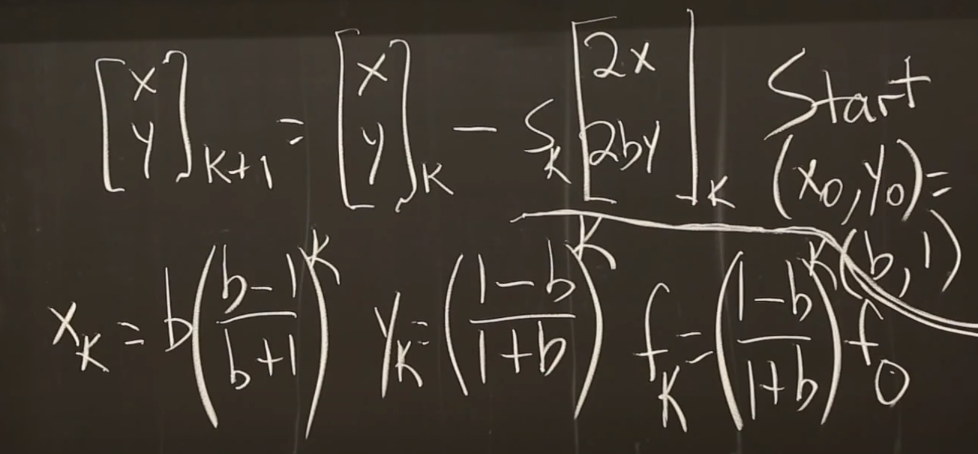 [x y]_{k+1} = [x y]_k - s_k [2x 2by]_k Start (x_0, y_0) = (b, 1)
x_k = b((b-1)/(b+1))^k y_k = ((1-b)/(1+b))^k f_k = ((1-b)/(1+b))^k f_0